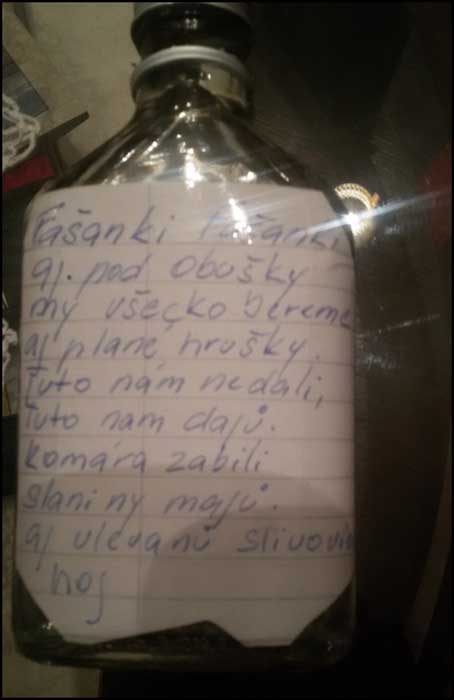 Fašanki fašanki,
aj. pod obušky
my všecko bereme
aj plané hrušky.
Tuto nám nedali,
Tuto nam dajů.
komára zabili
slaniny majů.
aj ulevanů slivovic
hoj